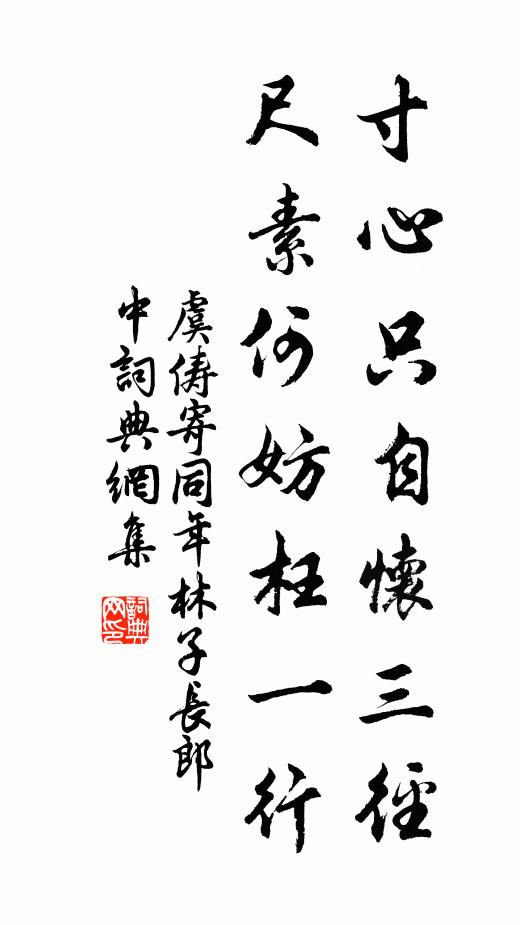 寸心只自懷三徑
尺素何妨枉一行
虞儔寄同年林子長郎
中詞典網集
詞典网印